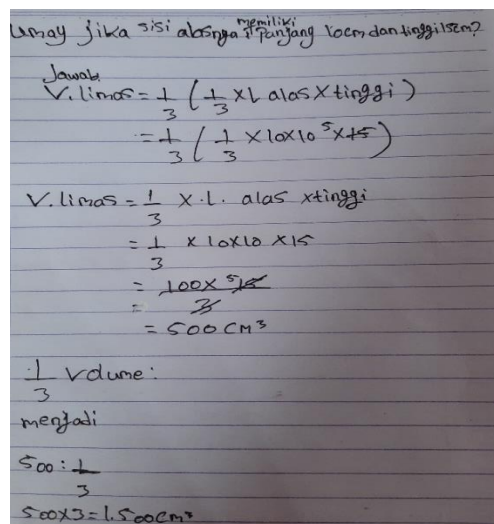 Umay jika sisi alasnya memiliki panjang 10cm dan tinggi 15cm?
Jawab
V.limas = 1/3 ( 1/3 x L alas x tinggi )
= 1/3 ( 1/3 x 10x10 5 x 15 )
V.limas = 1/3 x .l. alas x tinggi
= 1/3 x 10x10 x 15
= 100 x 5 15 / 3
= 500 cm³
1/3 Volume :
menjadi
500 : 1/3
500x3 = 1.500 cm³